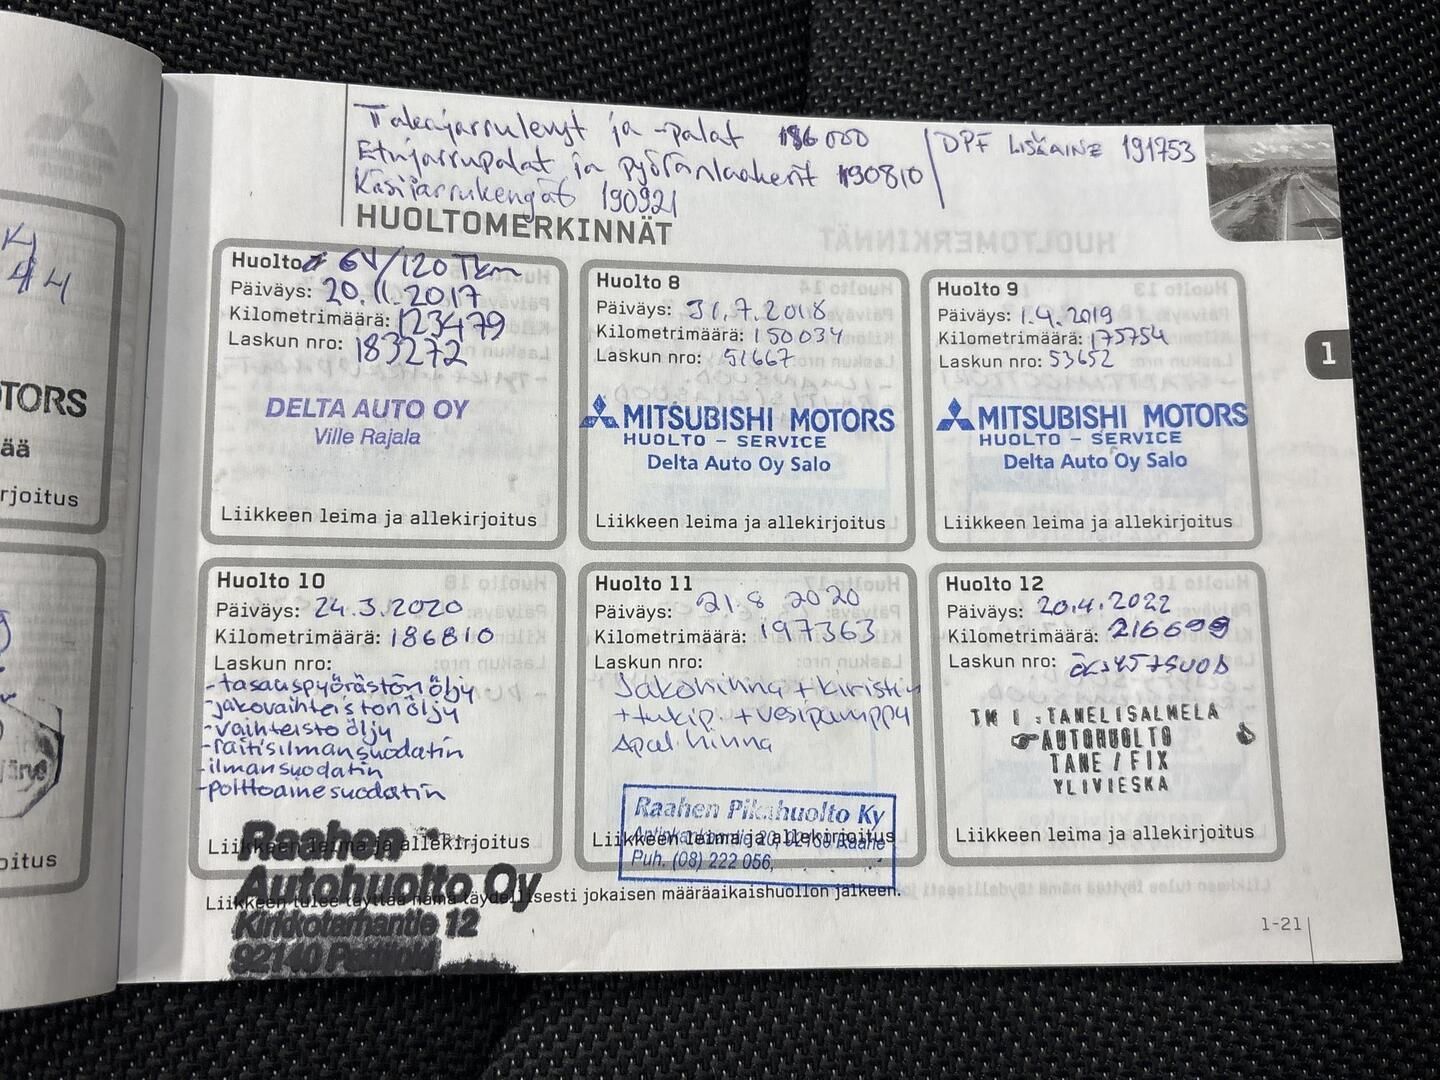 Takajarrulevyt ja -palat 186000
Etujarrupalat ja pyöränlaakerit 190810
Käsijarrukengät 190921
DPF LISÄAINE 191753
HUOLTOMERKINNÄT
Huolto 6V/120 Tkm
Päiväys: 20.11.2017
Kilometrimäärä: 123479
Laskun nro: 183272
DELTA AUTO OY
Ville Rajala
Liikkeen leima ja allekirjoitus
Huolto 8
Päiväys: 31.7.2018
Kilometrimäärä: 150034
Laskun nro: 51667
MITSUBISHI MOTORS
HUOLTO - SERVICE
Delta Auto Oy Salo
Liikkeen leima ja allekirjoitus
Huolto 9
Päiväys: 1.4.2019
Kilometrimäärä: 175754
Laskun nro: 53652
MITSUBISHI MOTORS
HUOLTO - SERVICE
Delta Auto Oy Salo
Liikkeen leima ja allekirjoitus
1
Huolto 10
Päiväys: 24.3.2020
Kilometrimäärä: 186810
Laskun nro:
-tasauspyörästön öljy
-jakovaihteiston öljy
-vaihteistoöljy
-raitisilmansuodatin
-ilmansuodatin
-polttoainesuodatin
Liikkeen leima ja allekirjoitus
Raahen
Autohuolto Oy
Kirkkotarhantie 12
92140
Huolto 11
Päiväys: 21.8 2020
Kilometrimäärä: 197363
Laskun nro:
Jakohihna + kiristin
+ tukip. + vesipumppu
Apul.hihna
Raahen Pikahuolto Ky
Puh. (08) 222 056,
Liikkeen leima ja allekirjoitus
Huolto 12
Päiväys: 20.4.2022
Kilometrimäärä: 216699
Laskun nro:
TMI :TANELISALMELA
AUTOHUOLTO
TANE/FIX
YLIVIESKA
Liikkeen leima ja allekirjoitus
Liikkeen tulee täyttää nämä täydellisesti jokaisen määräaikaishuollon jälkeen.
1-21
44
TORS
ää
rjoitus
oitus